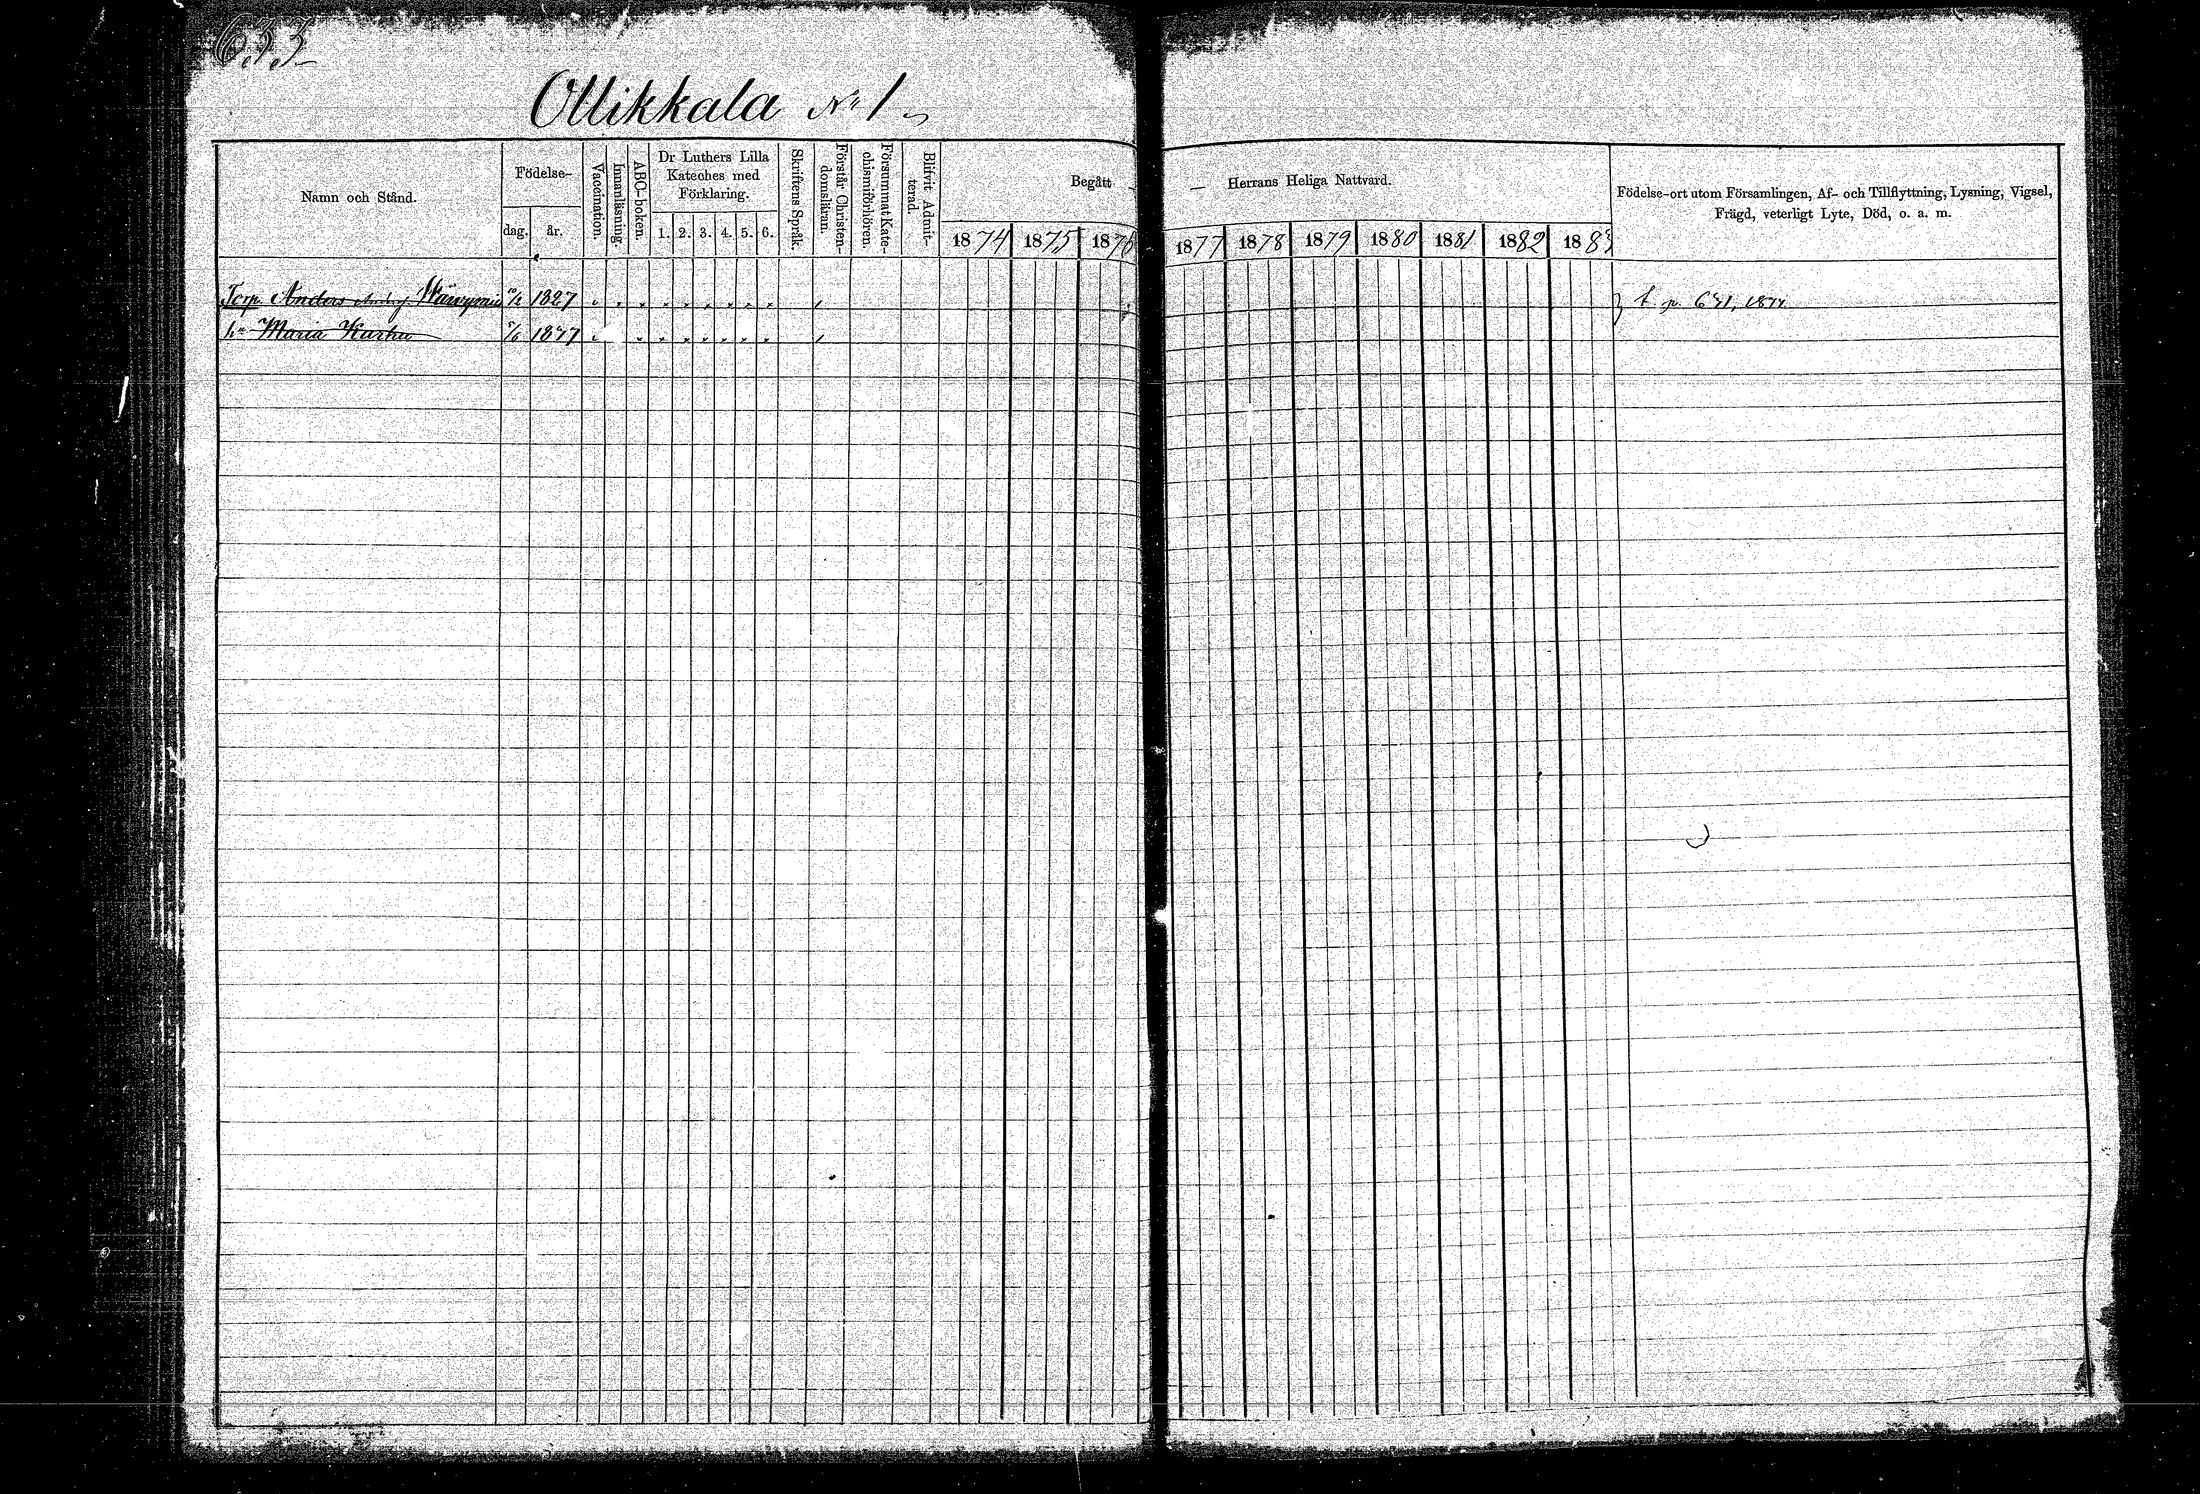 633
Ollikkala No 1
Namn och Stånd.
Födelse-
dag.
år.
Vaccination.
Innanläsning.
ABC-boken.
Dr Luthers Lilla
Kateches med
Förklaring.
1. 2. 3. 4. 5. 6.
Skriftens Språk.
Förstår Christen-
domsläran.
Försummat Kate-
chismiförhören.
Blifvit Admit-
terad.
Begått — — Herrans Heliga Nattvard.
1874 1875 1876 1877 1878 1879 1880 1881 1882 1883
Födelse-ort utom Församlingen, Af- och Tillflyttning, Lysning, Vigsel,
Frägd, veterligt Lyte, Död, o. a. m.
Torp. Anders 1827
Maria Kurhu 1847